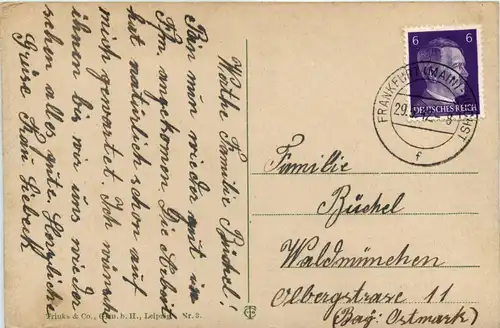 Werthe Familie Büchel!
Bin nun wieder gut in
Ffm angekomen Die Arbeit
hat natürlich schon auf
mich gewartet. Ich wünsche
ihnen bis wir uns wieder
sehen alles gute. Herzliche
Grüse Frau Siebeck
6 6
DEUTSCHES REICH
FRANKFURT (MAIN)
29.
f
Familie
Büchel
Waldmünchen
Olbergstrase 11
(Bay: Ostmark)
Trinks & Co., G.m.b.H., Leipzig. Nr. 2.